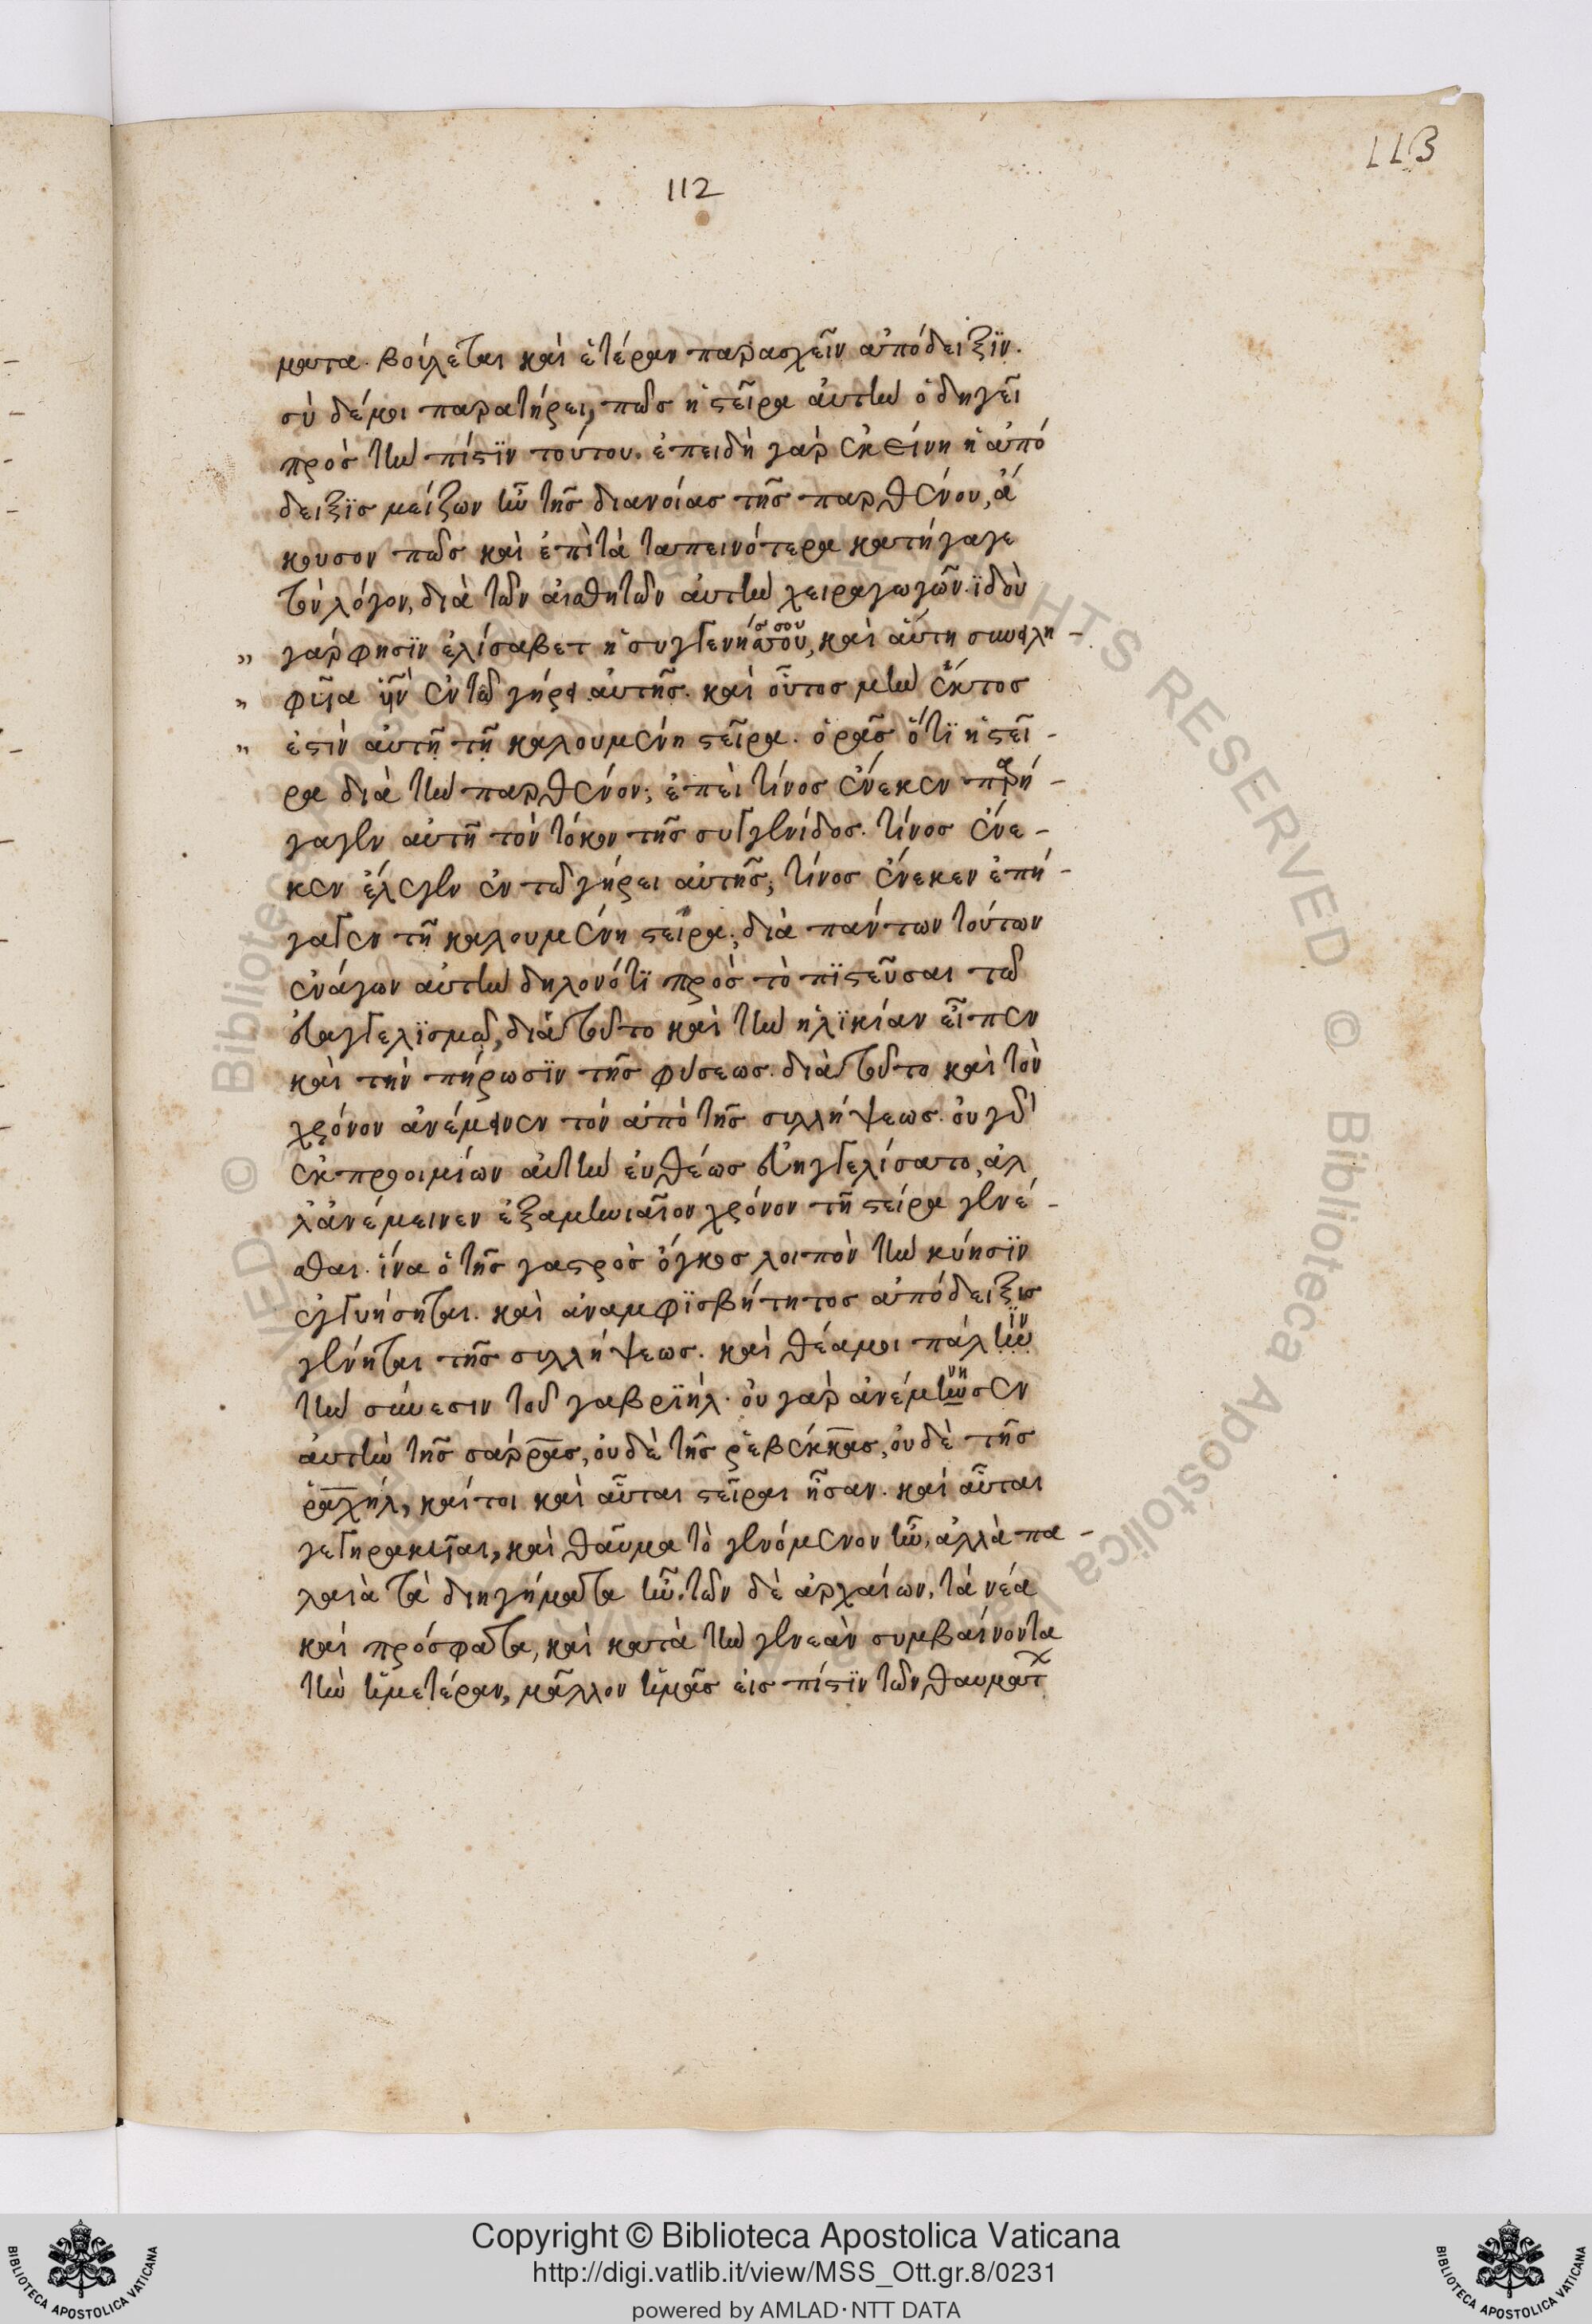 113
112
ματα. βούλεται καὶ ἑτέραν παρασχεῖν ἀπόδειξϊν.
σὺ δέ μοι παρατήρει, πῶς ἡ στεῖρα ἀυτὴν ὁδηγεῖ
πρὸς τὴν πίστϊν τούτου. ἐπειδὴ γὰρ ἐκείνη ἡ ἀπό
δειξϊς μείζων ἦν τῆς διανοίας τῆς παρθένου, ἄ
κουσον πῶς καὶ ἐπὶ τὰ ταπεινότερα κατήγαγε
τὸν λόγον, διὰ τῶν ἀισθητῶν ἀυτὴν χειραγωγῶν. ἰδοὺ
" γὰρ φησϊν ἐλίσαβετ ἡ συγγενής σου, καὶ ἀύτη συνειλη-
" φῦῖα ἦν ἐν τῷ γήρει ἀυτῆς. καὶ οὗτος μὴν ἕκτος
" ἐστὶν ἀυτῇ τῇ καλουμένῃ στεῖρα. ὁρᾶς ὅτϊ ἡ στεῖ-
ρα διὰ τὴν παρθένον; ἐπεὶ τίνος ἕνεκεν παρή-
γαγεν αὐτῇ τὸν τόκον τῆς συγγενίδος. τίνος ἕνε-
κεν ἔλεγεν ἐν τῷ γήρει ἀυτῆς; τίνος ἕνεκεν ἐπή-
γαγεν τῇ καλουμένῃ στείρα; διὰ πάντων τούτων
ἐνάγων ἀυτὴν δηλονότϊ πρὸς τὸ πϊστεῦσαι τῷ
ἐυαγγελϊσμῷ, διὰ τοῦτο καὶ τὴν ἡλϊκίαν εἶπεν
καὶ τὴν πήρωσϊν τῆς φύσεως. διὰ τοῦτο καὶ τὸν
χρόνον ἀνέμεινεν τὸν ἀπὸ τῆς συλλήψεως. ὀυ γὰρ
ἐκ προοιμίων ἀυτὴν ἐυθέως ἐυηγγελίσατο, ἀλ
λ' ἀνέμεινεν ἑξαμηνιαῖον χρόνον τῇ στείρα γενέ-
σθαι. ἵνα ὁ τῆς γαστρὸς ὄγκος λοιπὸν τὴν κύησϊν
ἐγγυήσηται. καὶ ἀναμφϊσβήτητος ἀπόδειξις
γένηται τῆς συλλήψεως. καὶ θέα μοι πάλϊν
τὴν σύνεσιν τοῦ γαβρϊήλ. ὀυ γὰρ ἀνέμνησεν
ἀυτὴν τῆς σάρρας, ὀυδὲ τῆς ῥεβέκκας, ὀυδὲ τῆς
ῥαχήλ, καίτοι καὶ αὗται στεῖραι ἦσαν. καὶ αὗται
γεγηρακυῖαι, καὶ θαῦμα τὸ γενόμενον ἦν, ἀλλὰ πα-
λαιὰ τὰ διηγήματα ἦν. τῶν δὲ ἀρχαίων, τὰ νέα
καὶ πρόσφατα, καὶ κατὰ τὴν γενεὰν συμβαίνοντα
τὴν ἡμετέραν, μᾶλλον ἡμᾶς εἰς πίστϊν τῶν θαυμάτ
© Biblioteca Apostolica Vaticana ALL RIGHTS RESERVED
Copyright © Biblioteca Apostolica Vaticana
http://digi.vatlib.it/view/MSS_Ott.gr.8/0231
powered by AMLAD·NTT DATA
BIBLIOTECA APOSTOLICA VATICANA
BIBLIOTECA APOSTOLICA VATICANA